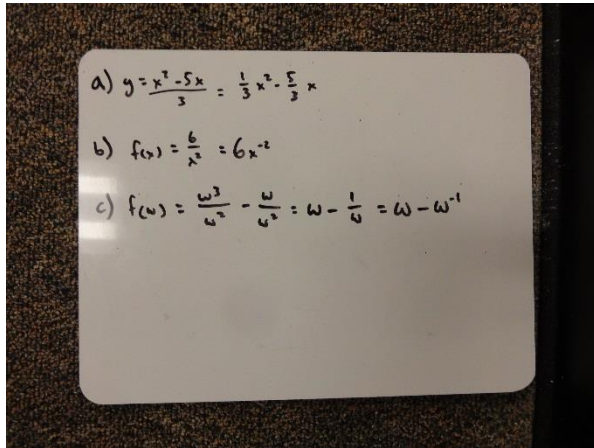 a) y = x² - 5x / 3 = 1/3 x² - 5/3 x
b) f(x) = 6/x² = 6x⁻²
c) f(w) = w³/w² - w/w² = w - 1/w = w - w⁻¹